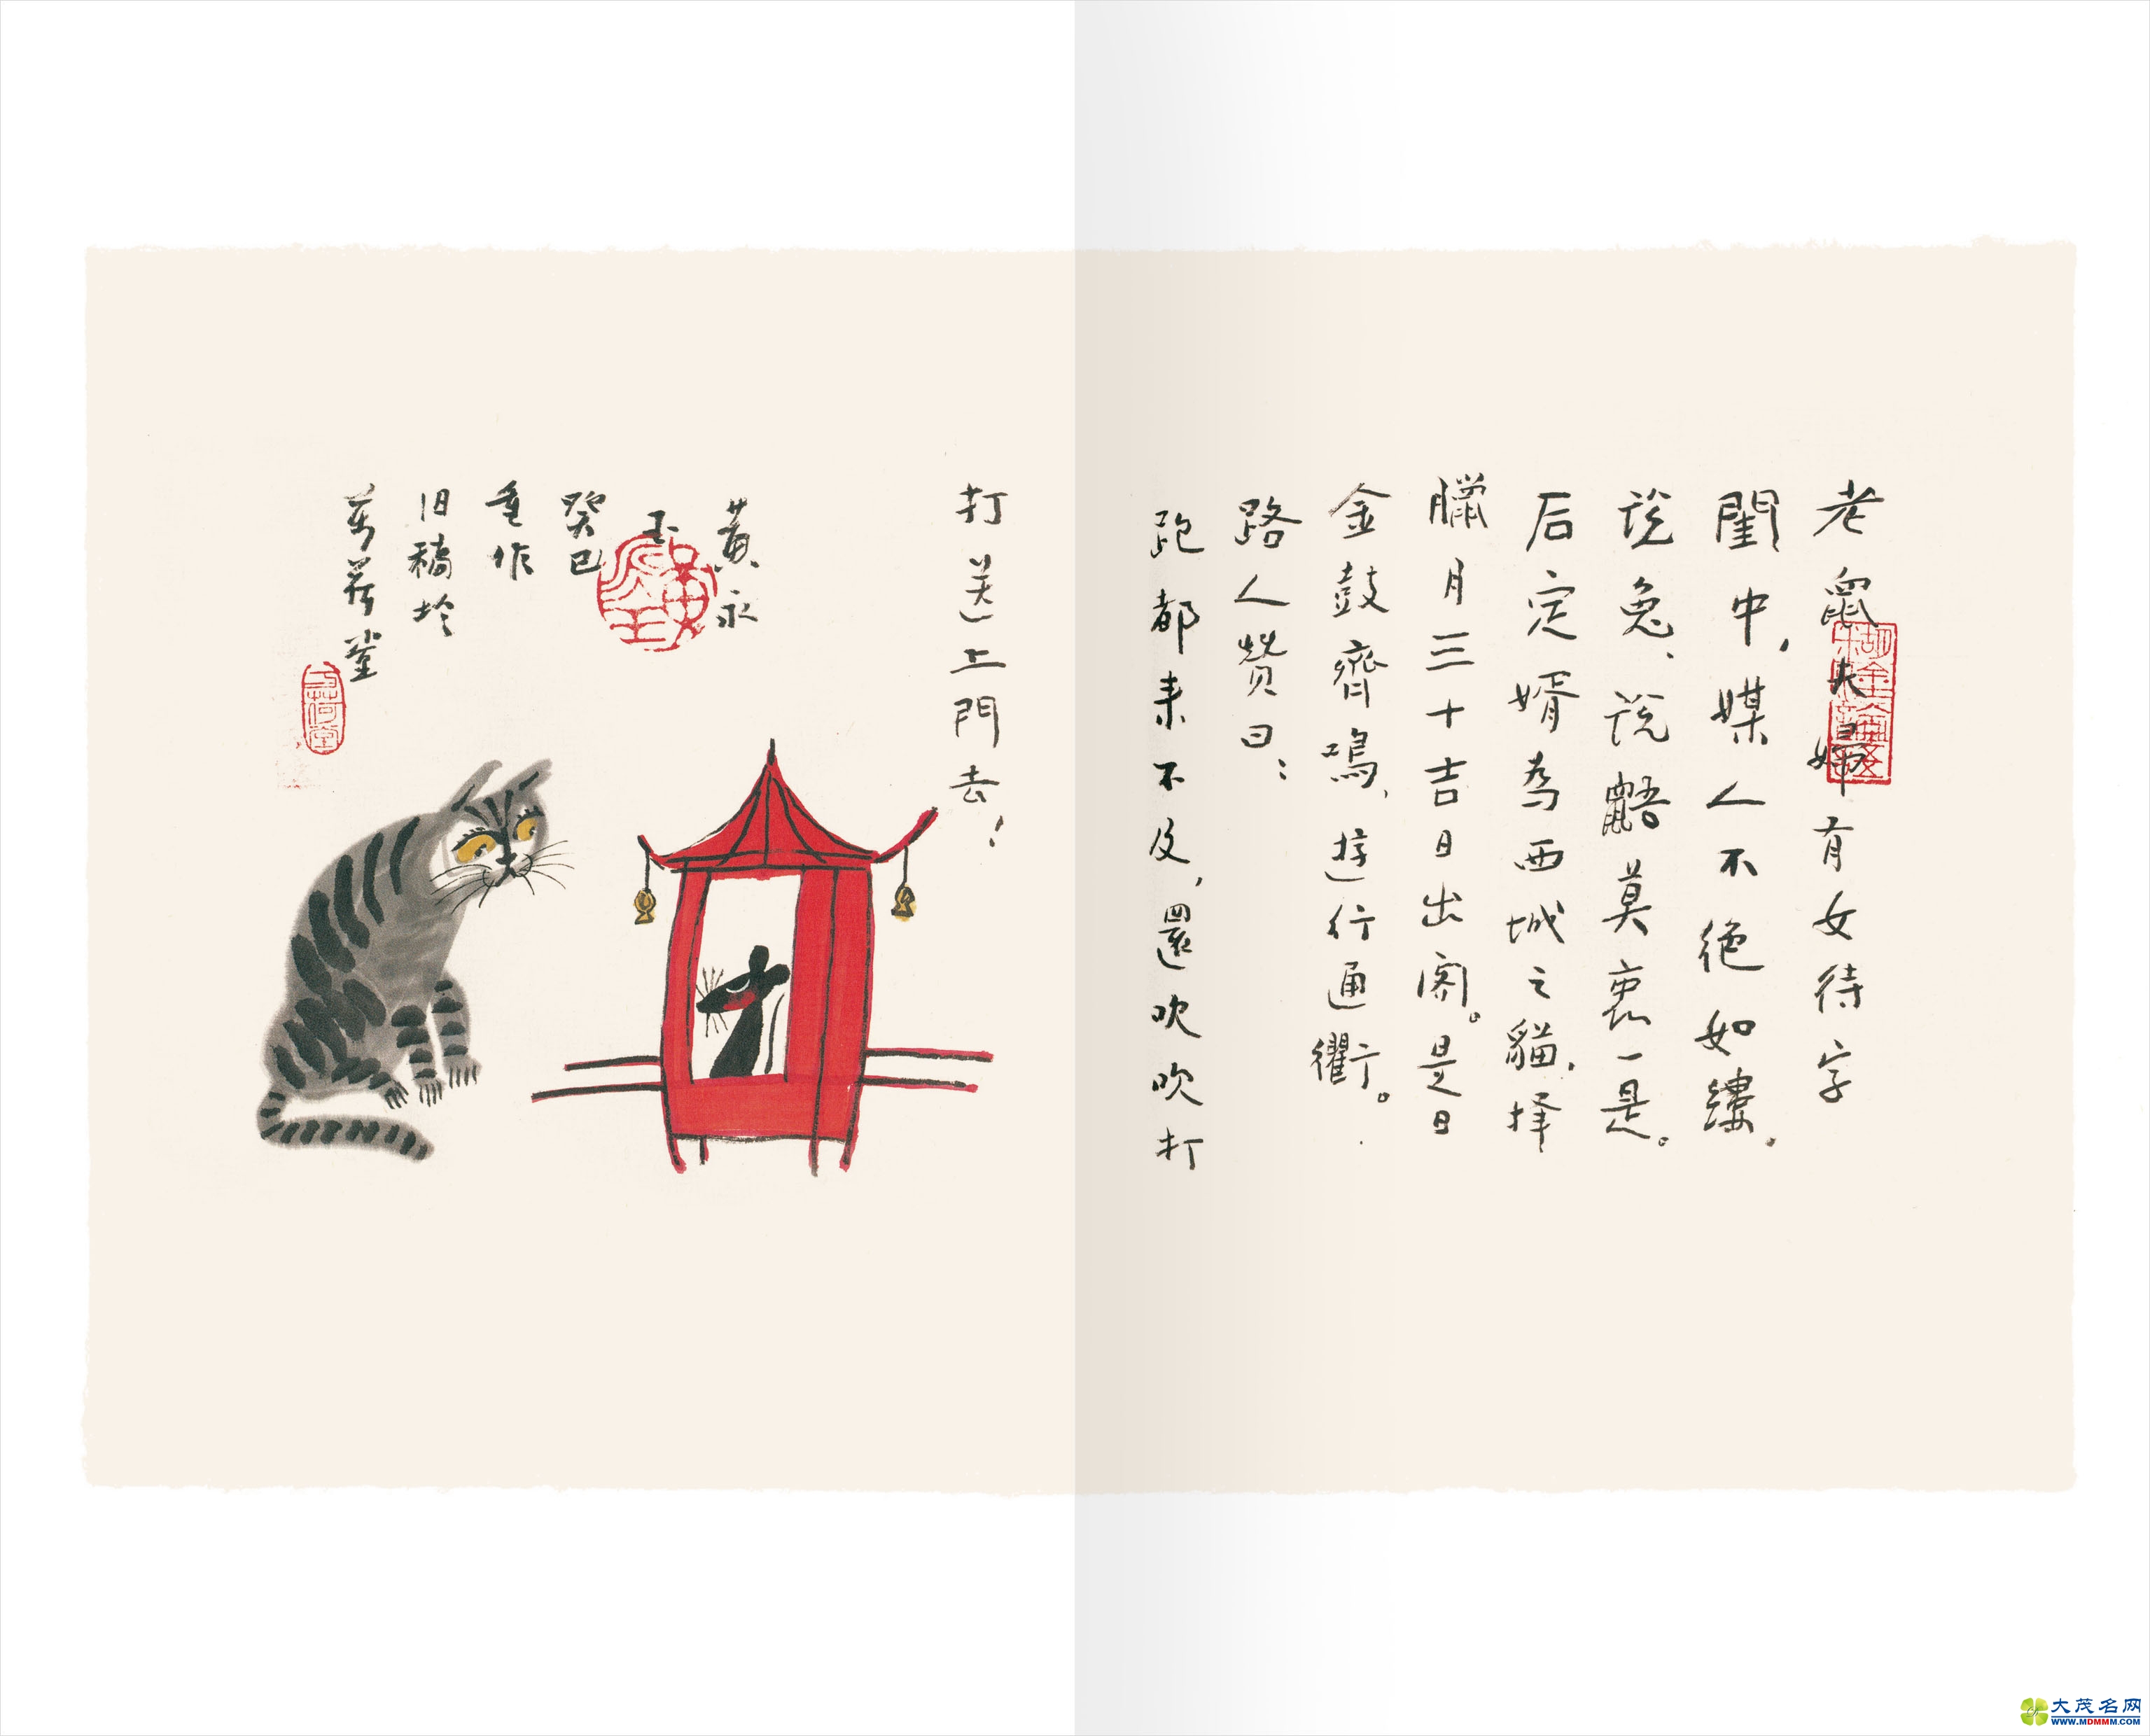 老鼠夫婦有女待字
閨中，媒人不绝如縷。
说兔、说鼯莫衷一是。
后定婿為西城之貓，择
臘月三十吉日出阁。是日
金鼓齊鳴，遊行通衢。
路人赞曰：
跑都来不及，還吹吹打
打送上門去！
黄永
玉
癸巳
重作
旧稿於
萬荷堂
大茂名网
WWW.MDMMM.COM